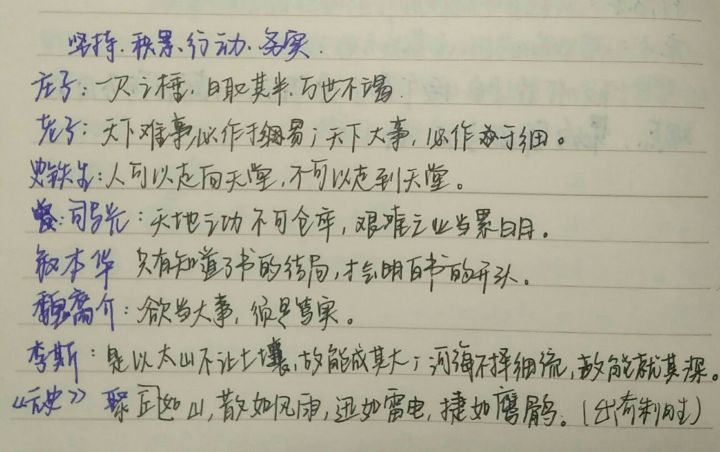 坚持、积累、行动、务实
庄子：一尺之棰，日取其半，万世不竭.
老子：天下难事，必作于细易；天下大事，必作于细。
史铁生：人可以走向天堂，不可以走到天堂。
司马光：天地之功不可仓库，艰难之业当累日月。
叔本华 只有知道了书的结局，才会明白书的开头。
魏裔介：欲当大事，须是笃实。
李斯：是以太山不让土壤，故能成其大；河海不择细流，故能就其深。
《元史》 聚如山，散如风雨，迅如雷电，捷如鹰鹘。（出奇制胜）